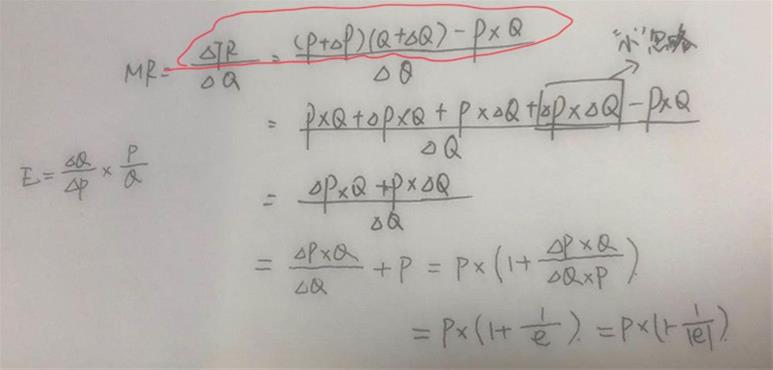 MR = ΔTR/ΔQ = (P+ΔP)(Q+ΔQ) - P×Q / ΔQ
"小"忽略
= P×Q + ΔP×Q + P×ΔQ + ΔP×ΔQ - P×Q / ΔQ
E = ΔQ/ΔP × P/Q
= ΔP×Q + P×ΔQ / ΔQ
= ΔP×Q/ΔQ + P = P×(1 + ΔP×Q/ΔQ×P)
= P×(1 + 1/e) = P×(1 - 1/|e|)